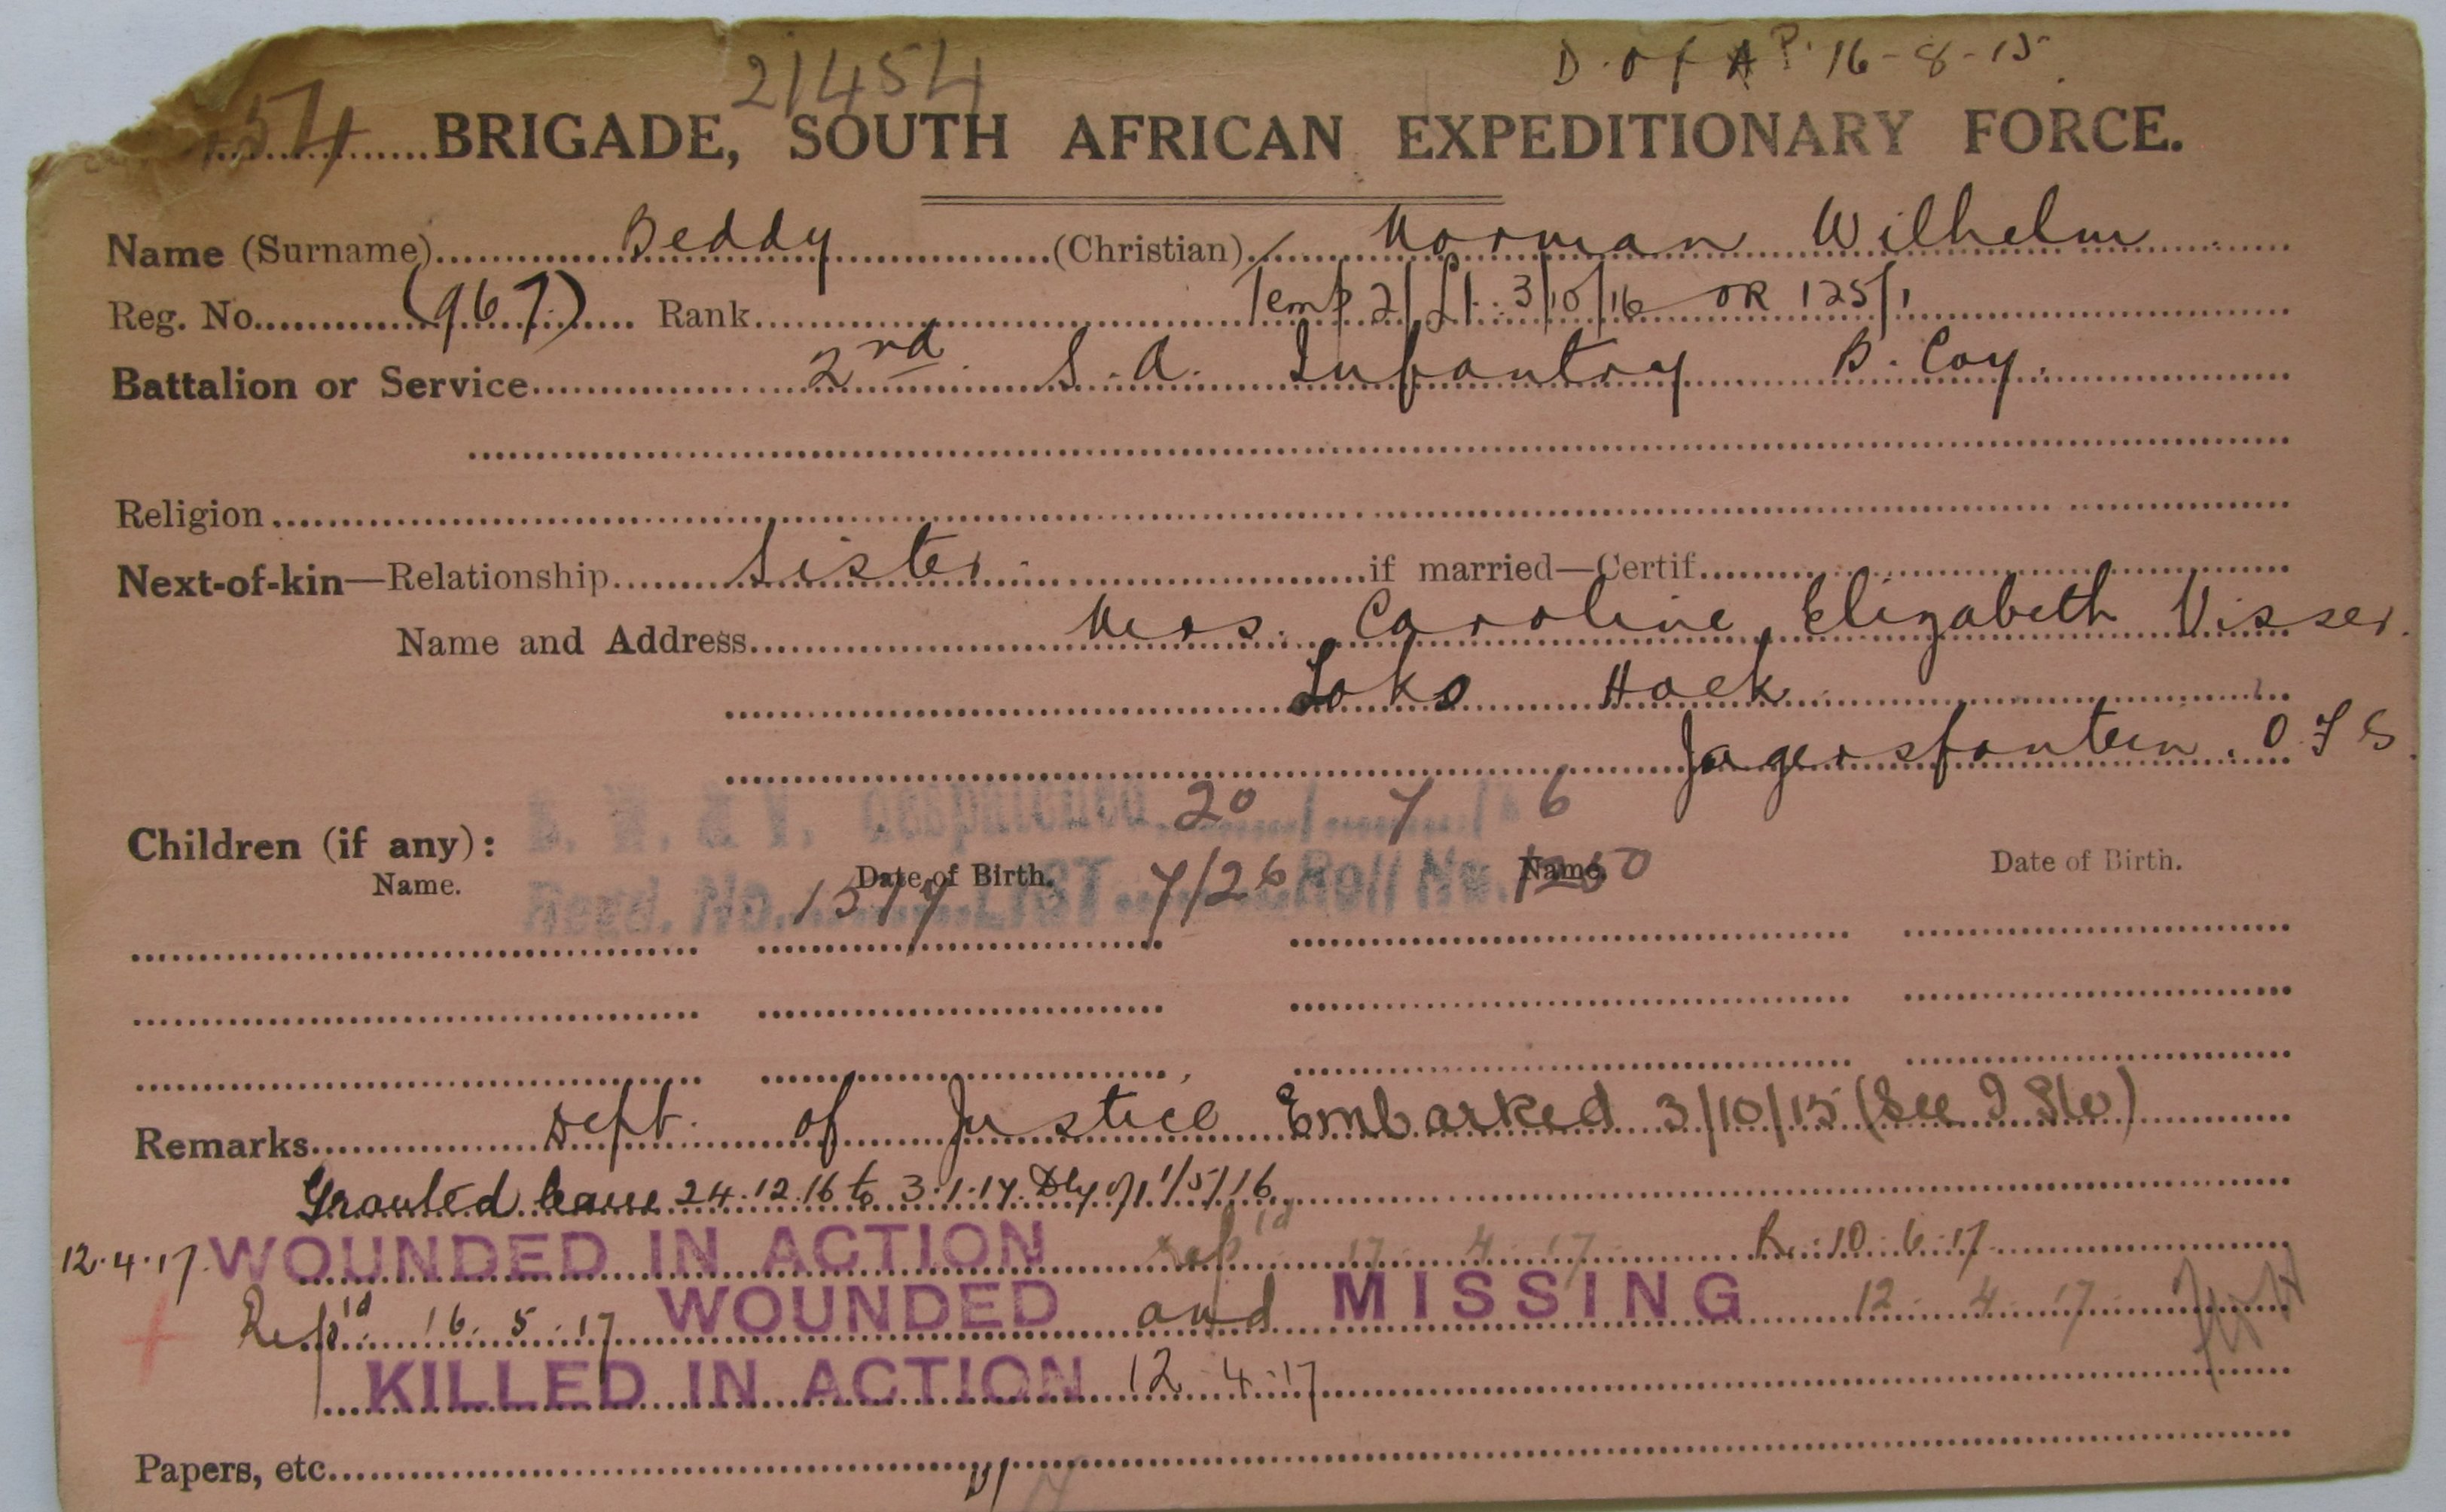 21454 D. of A P. 16-8-15
BRIGADE, SOUTH AFRICAN EXPEDITIONARY FORCE.
Name (Surname) Beddy (Christian) Norman Wilhelm
Reg. No. (967) Rank Temp 2/Lt. 3/10/16 OR 125/1
Battalion or Service 2nd S.A. Infantry B. Coy.
Religion
Next-of-kin—Relationship Sister if married—Certif.
Name and Address Mrs. Caroline Elizabeth Visser
Hoek
Jagersfontein. O F S.
despatched 20 7 6
Children (if any):
Name. Date of Birth. Name. Date of Birth.
Regd. No. 1579 LIST 7/26 Roll No. 1260
Remarks Dept. of Justice Embarked 3/10/15 (See
Granted leave 24.12.16 to 3.1.17. 1/5/16
12.4.17 WOUNDED IN ACTION rep'd 17 4 17 R. 10.6.17
Rep'd. 16.5.17 WOUNDED and MISSING 12 4 17
KILLED IN ACTION 12.4.17
Papers, etc.